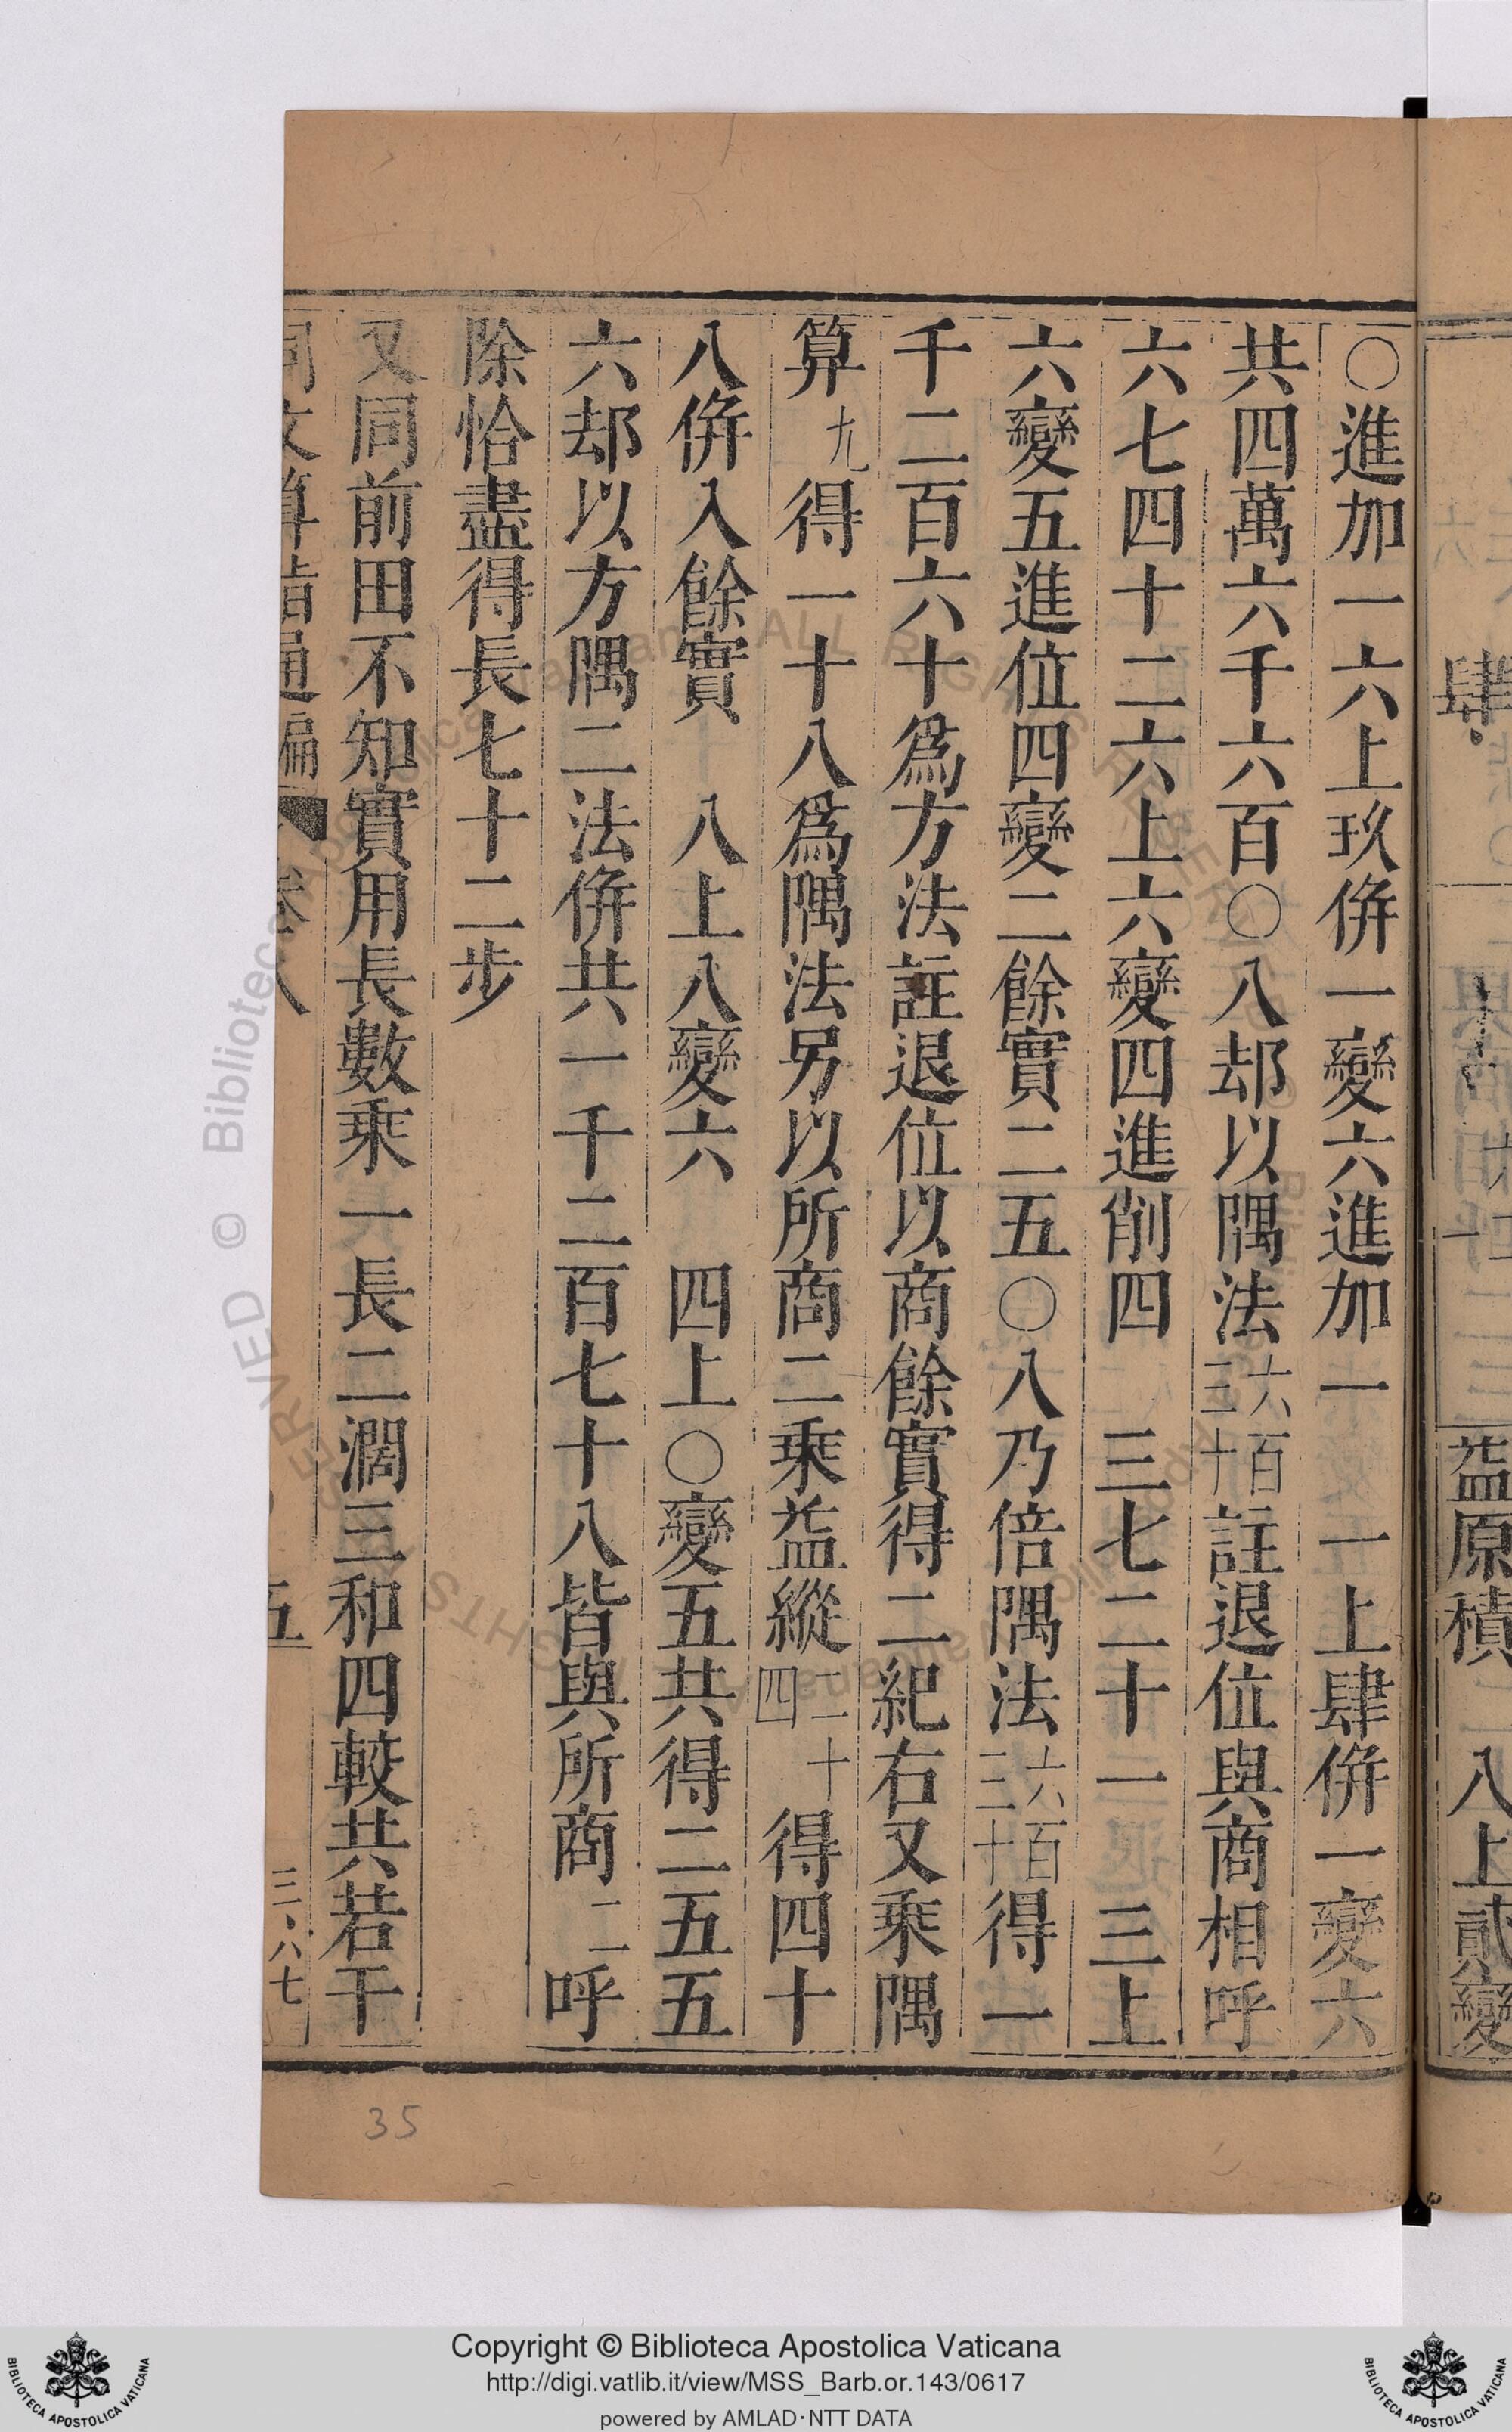 ○進加一六上玖併一變六進加一 一上肆併一變六
共四萬六千六百○八却以隅法六百三十註退位與商相呼
六七四十二六上六變四進削四 三七二十一 三上
六變五進位四變二餘實二五○八乃倍隅法六百三十得一
千二百六十爲方法註退位以商餘實得二紀右又乘隅
算九得一十八爲隅法另以所商二乘益縱二十四得四十
八併入餘實 八上八變六 四上○變五共得二五五
六却以方隅二法併共一千二百七十八皆與所商二呼
除恰盡得長七十二步
又同前田不知實用長數乘一長二濶三和四較共若干
同文算指通編 卷八 五 三·八七
益原積 八上貳變
肆
35
Copyright © Biblioteca Apostolica Vaticana
http://digi.vatlib.it/view/MSS_Barb.or.143/0617
powered by AMLAD·NTT DATA
BIBLIOTECA APOSTOLICA VATICANA
BIBLIOTECA APOSTOLICA VATICANA